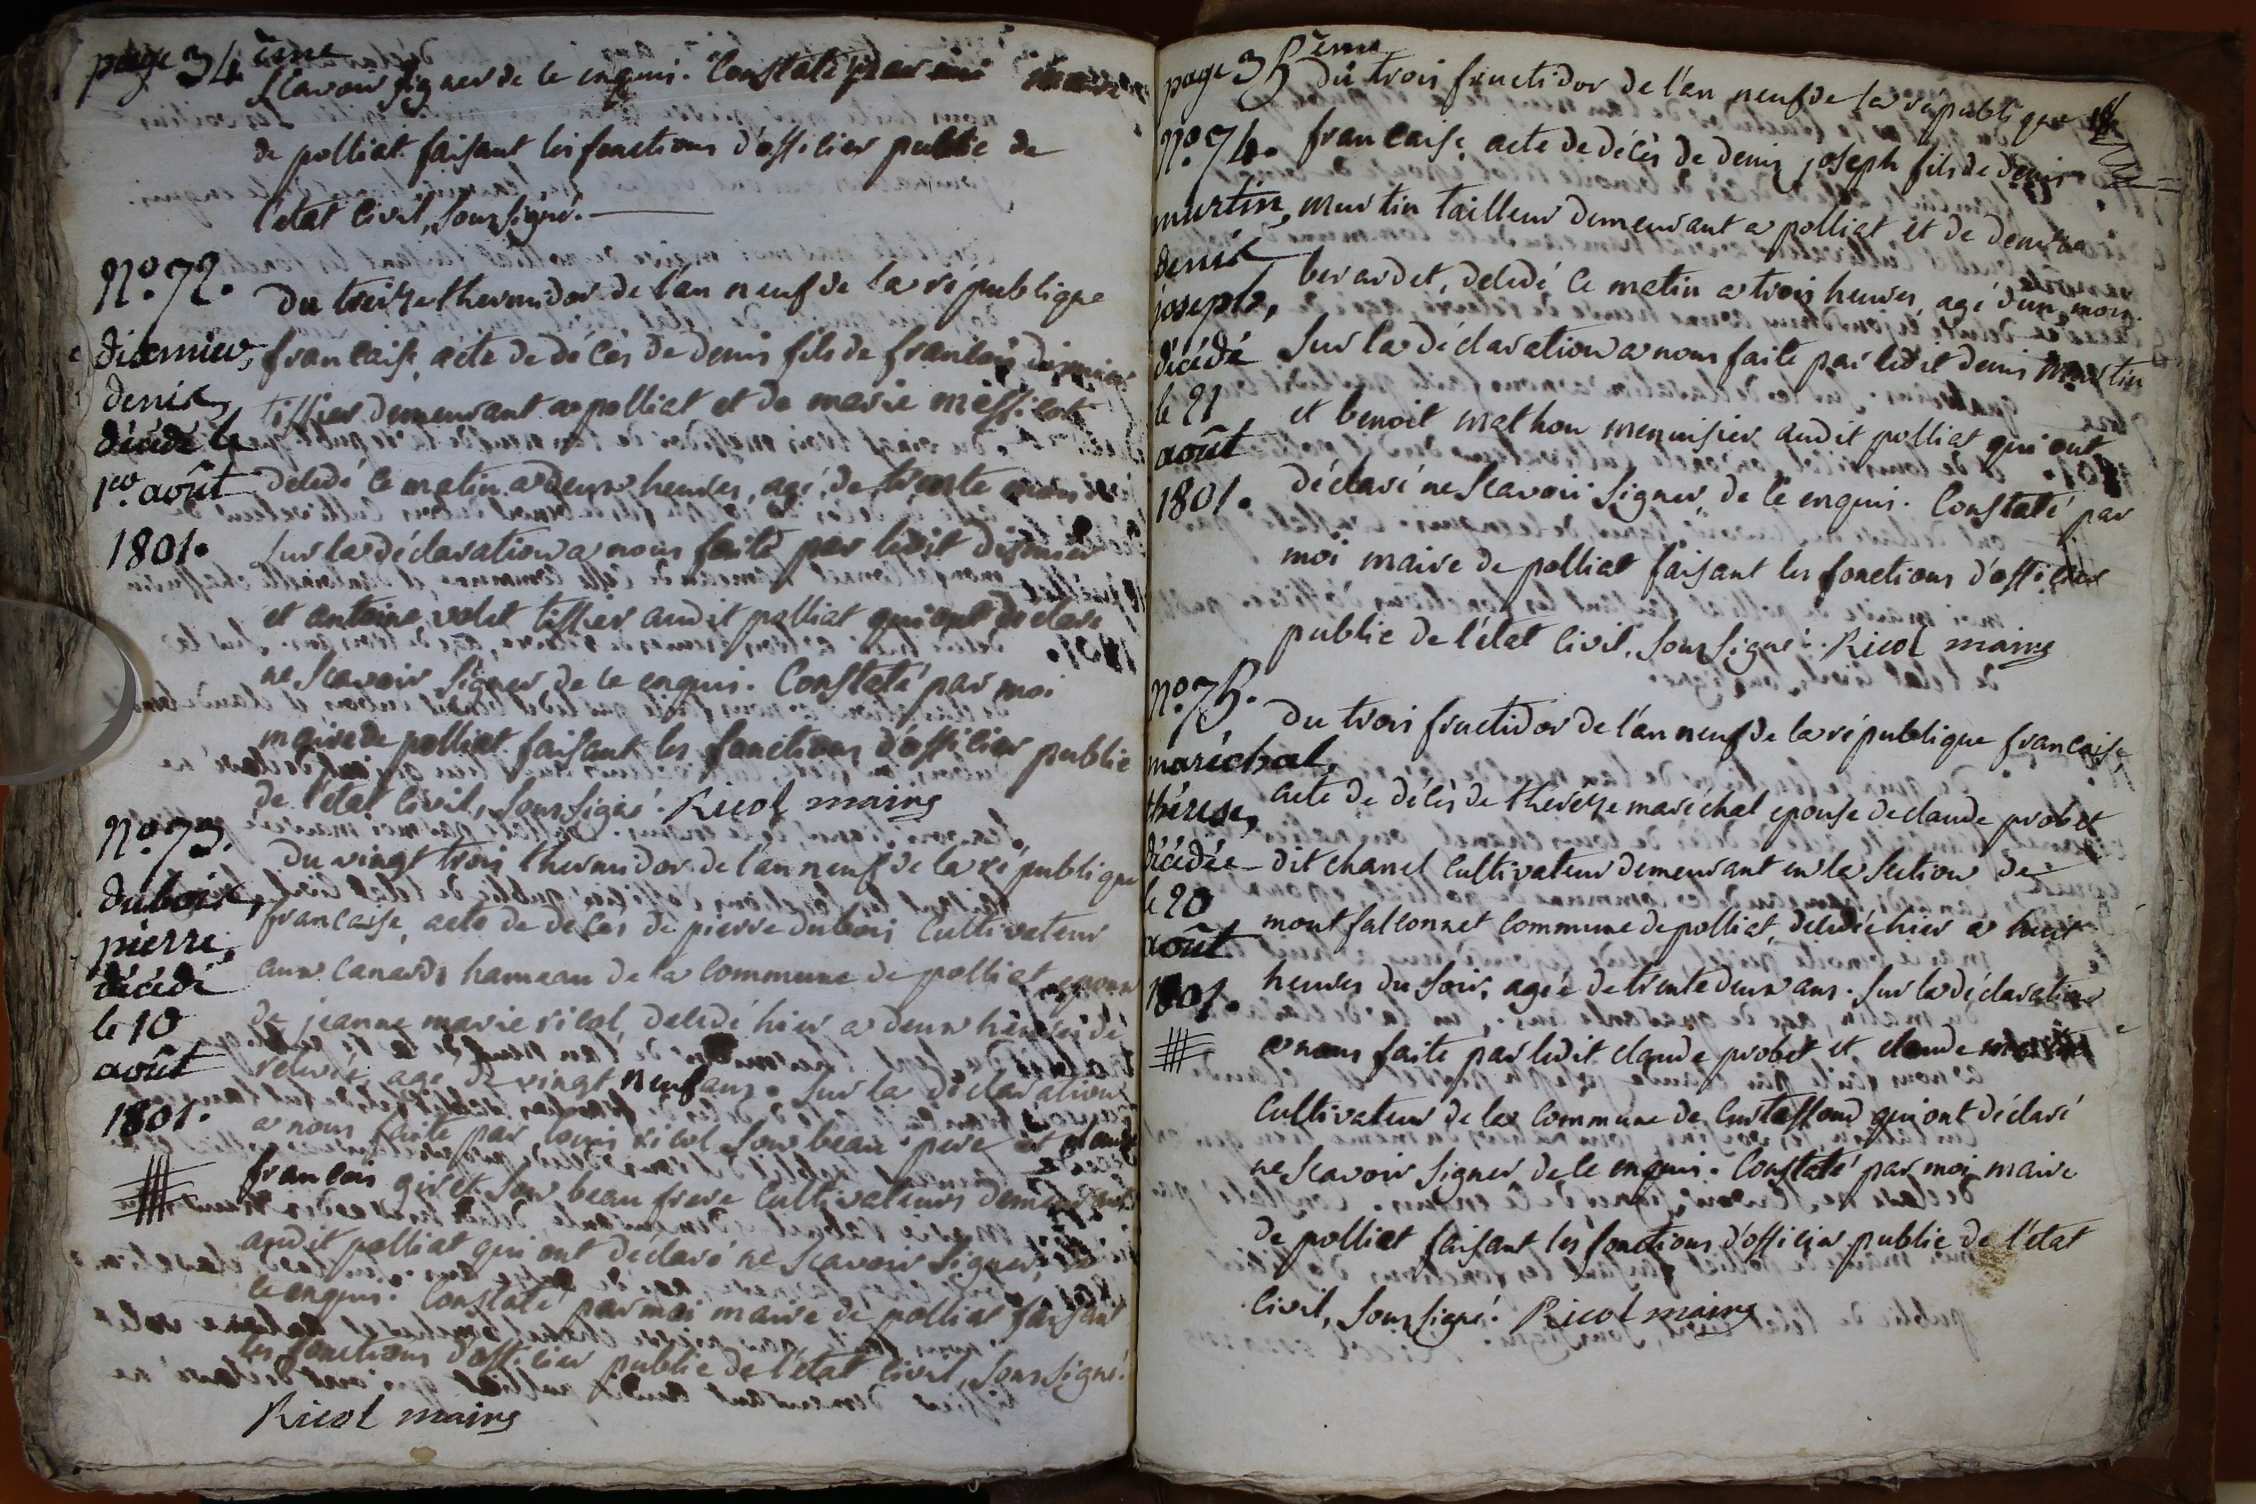 page 34 ème
scavoir signer de ce enquis. Constaté par moi maire
de polliat faisant les fonctions d'officier public de
l'état civil, soussigné.
N.o 72.
dixmier,
denis,
décédé le
1er août
1801.
Du treize thermidor de l'an neuf de la république
francaise, acte de décès de denis fils de francois dixmier
tissier demeurant a polliat et de marie
décédé ce matin a deux heures, agé de trente
sur la déclaration a nous faite par ledit dixmier
et antoine volet tissier audit polliat qui ont déclaré
ne scavoir signer de ce enquis. Constaté par moi
maire de polliat faisant les fonctions d'officier public
de l'état civil, soussigné. Ricol maire
N.o 73.
dubois,
pierre,
décédé
le 10
août
1801.
Du vingt trois thermidor de l'an neuf de la république
francaise, acte de décès de pierre dubois cultivateur
aux canards hameau de la commune de polliat epoux
de jeanne marie ricol, décédé hier a deux heures de
relevée, agé de vingt neuf ans. sur la déclaration
a nous faite par louis ricol son beau pere et
francois giret son beau frere cultivateurs demeurant
audit polliat qui ont déclaré ne scavoir signer, de
ce enquis. Constaté par moi maire de polliat faisant
les fonctions d'officier public de l'état civil, soussigné.
Ricol maire
page 35 ème
N.o 74.
martin,
denis
joseph,
décédé
le 21
août
1801.
Du trois fructidor de l'an neuf de la république
francaise, acte de décès de denis joseph fils de denis
martin tailleur demeurant a polliat et de
berardet, décédé ce matin a trois heures, agé d'un mois.
sur la déclaration a nous faite par ledit denis martin
et benoit mathon menuisier audit polliat qui ont
déclaré ne scavoir signer, de ce enquis. Constaté par
moi maire de polliat faisant les fonctions d'officier
public de l'état civil, soussigné. Ricol maire
N.o 75.
maréchal,
thérese,
décédée
le 20
août
1801.
Du trois fructidor de l'an neuf de la république francaise,
acte de décès de thereze maréchal epouse de claude probet
dit chanel cultivateur demeurant en la section de
montfalconnet commune de polliat, décédée hier a huit
heures du soir, agée de trente deux ans. sur la déclaration
a nous faite par ledit claude probet et claude
cultivateur de la commune de Curtaffond qui ont déclaré
ne scavoir signer de ce enquis. Constaté par moi maire
de polliat faisant les fonctions d'officier public de l'état
civil, soussigné. Ricol maire